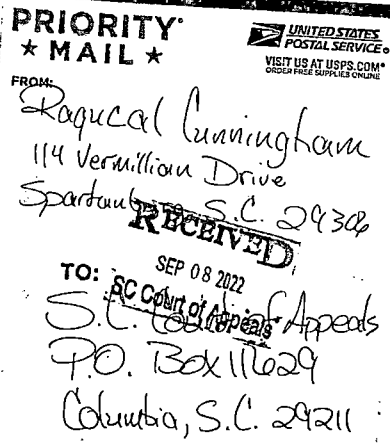 PRIORITY®
★ MAIL ★
UNITED STATES
POSTAL SERVICE®
VISIT US AT USPS.COM®
ORDER FREE SUPPLIES ONLINE
FROM:
Raqucal Cunningham
114 Vermillian Drive
S.C. 29306
RECEIVED
SEP 08 2022
SC Court of Appeals
TO:
S.C. Court of Appeals
P.O. Box 11629
Columbia, S.C. 29211